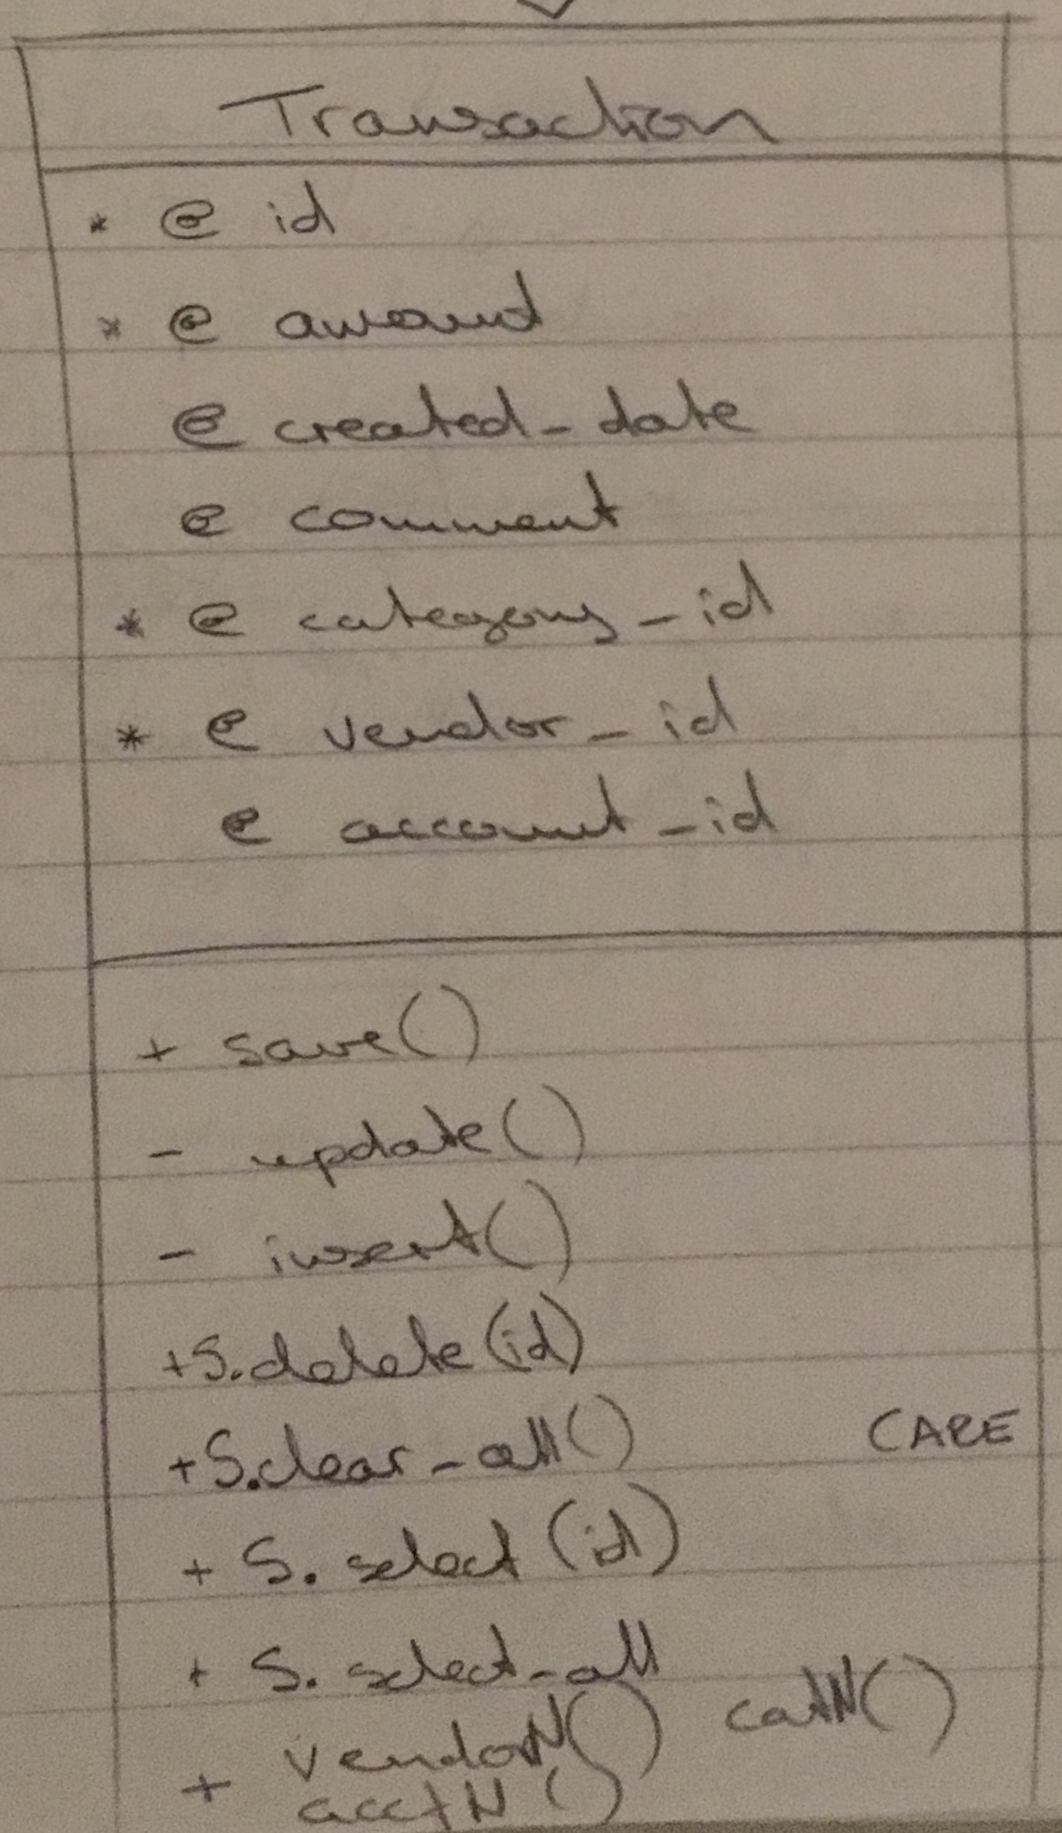 Transaction
* @ id
* @ amount
@ created_date
@ comment
* @ category_id
* @ vendor_id
@ account_id
+ save()
- update()
- insert()
+S.delete(id)
+S.clear_all() CARE
+ S. select (id)
+ S. select_all
+ vendorN() catN()
acctN()